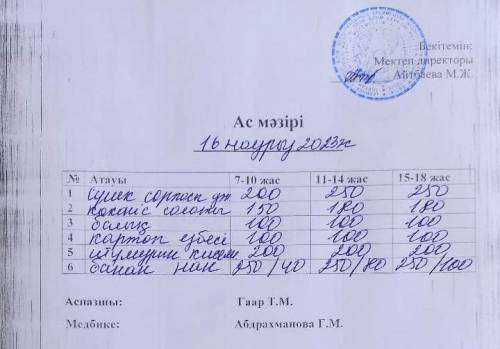 Бекітемін:
Мектеп директоры
Айтбаева М.Ж.
Ас мәзірі
16 наурыз 2023ж
№ Атауы 7-10 жас 11-14 жас 15-18 жас
1 сорпасы 200 250 250
2 150 180 180
3 балық 100 100 100
4 картоп езбесі 100 100 100
5 кисель 200 200 200
6 банан нан 250/40 250/80 250/100
Аспазшы: Гаар Т.М.
Медбике: Абдрахманова Г.М.